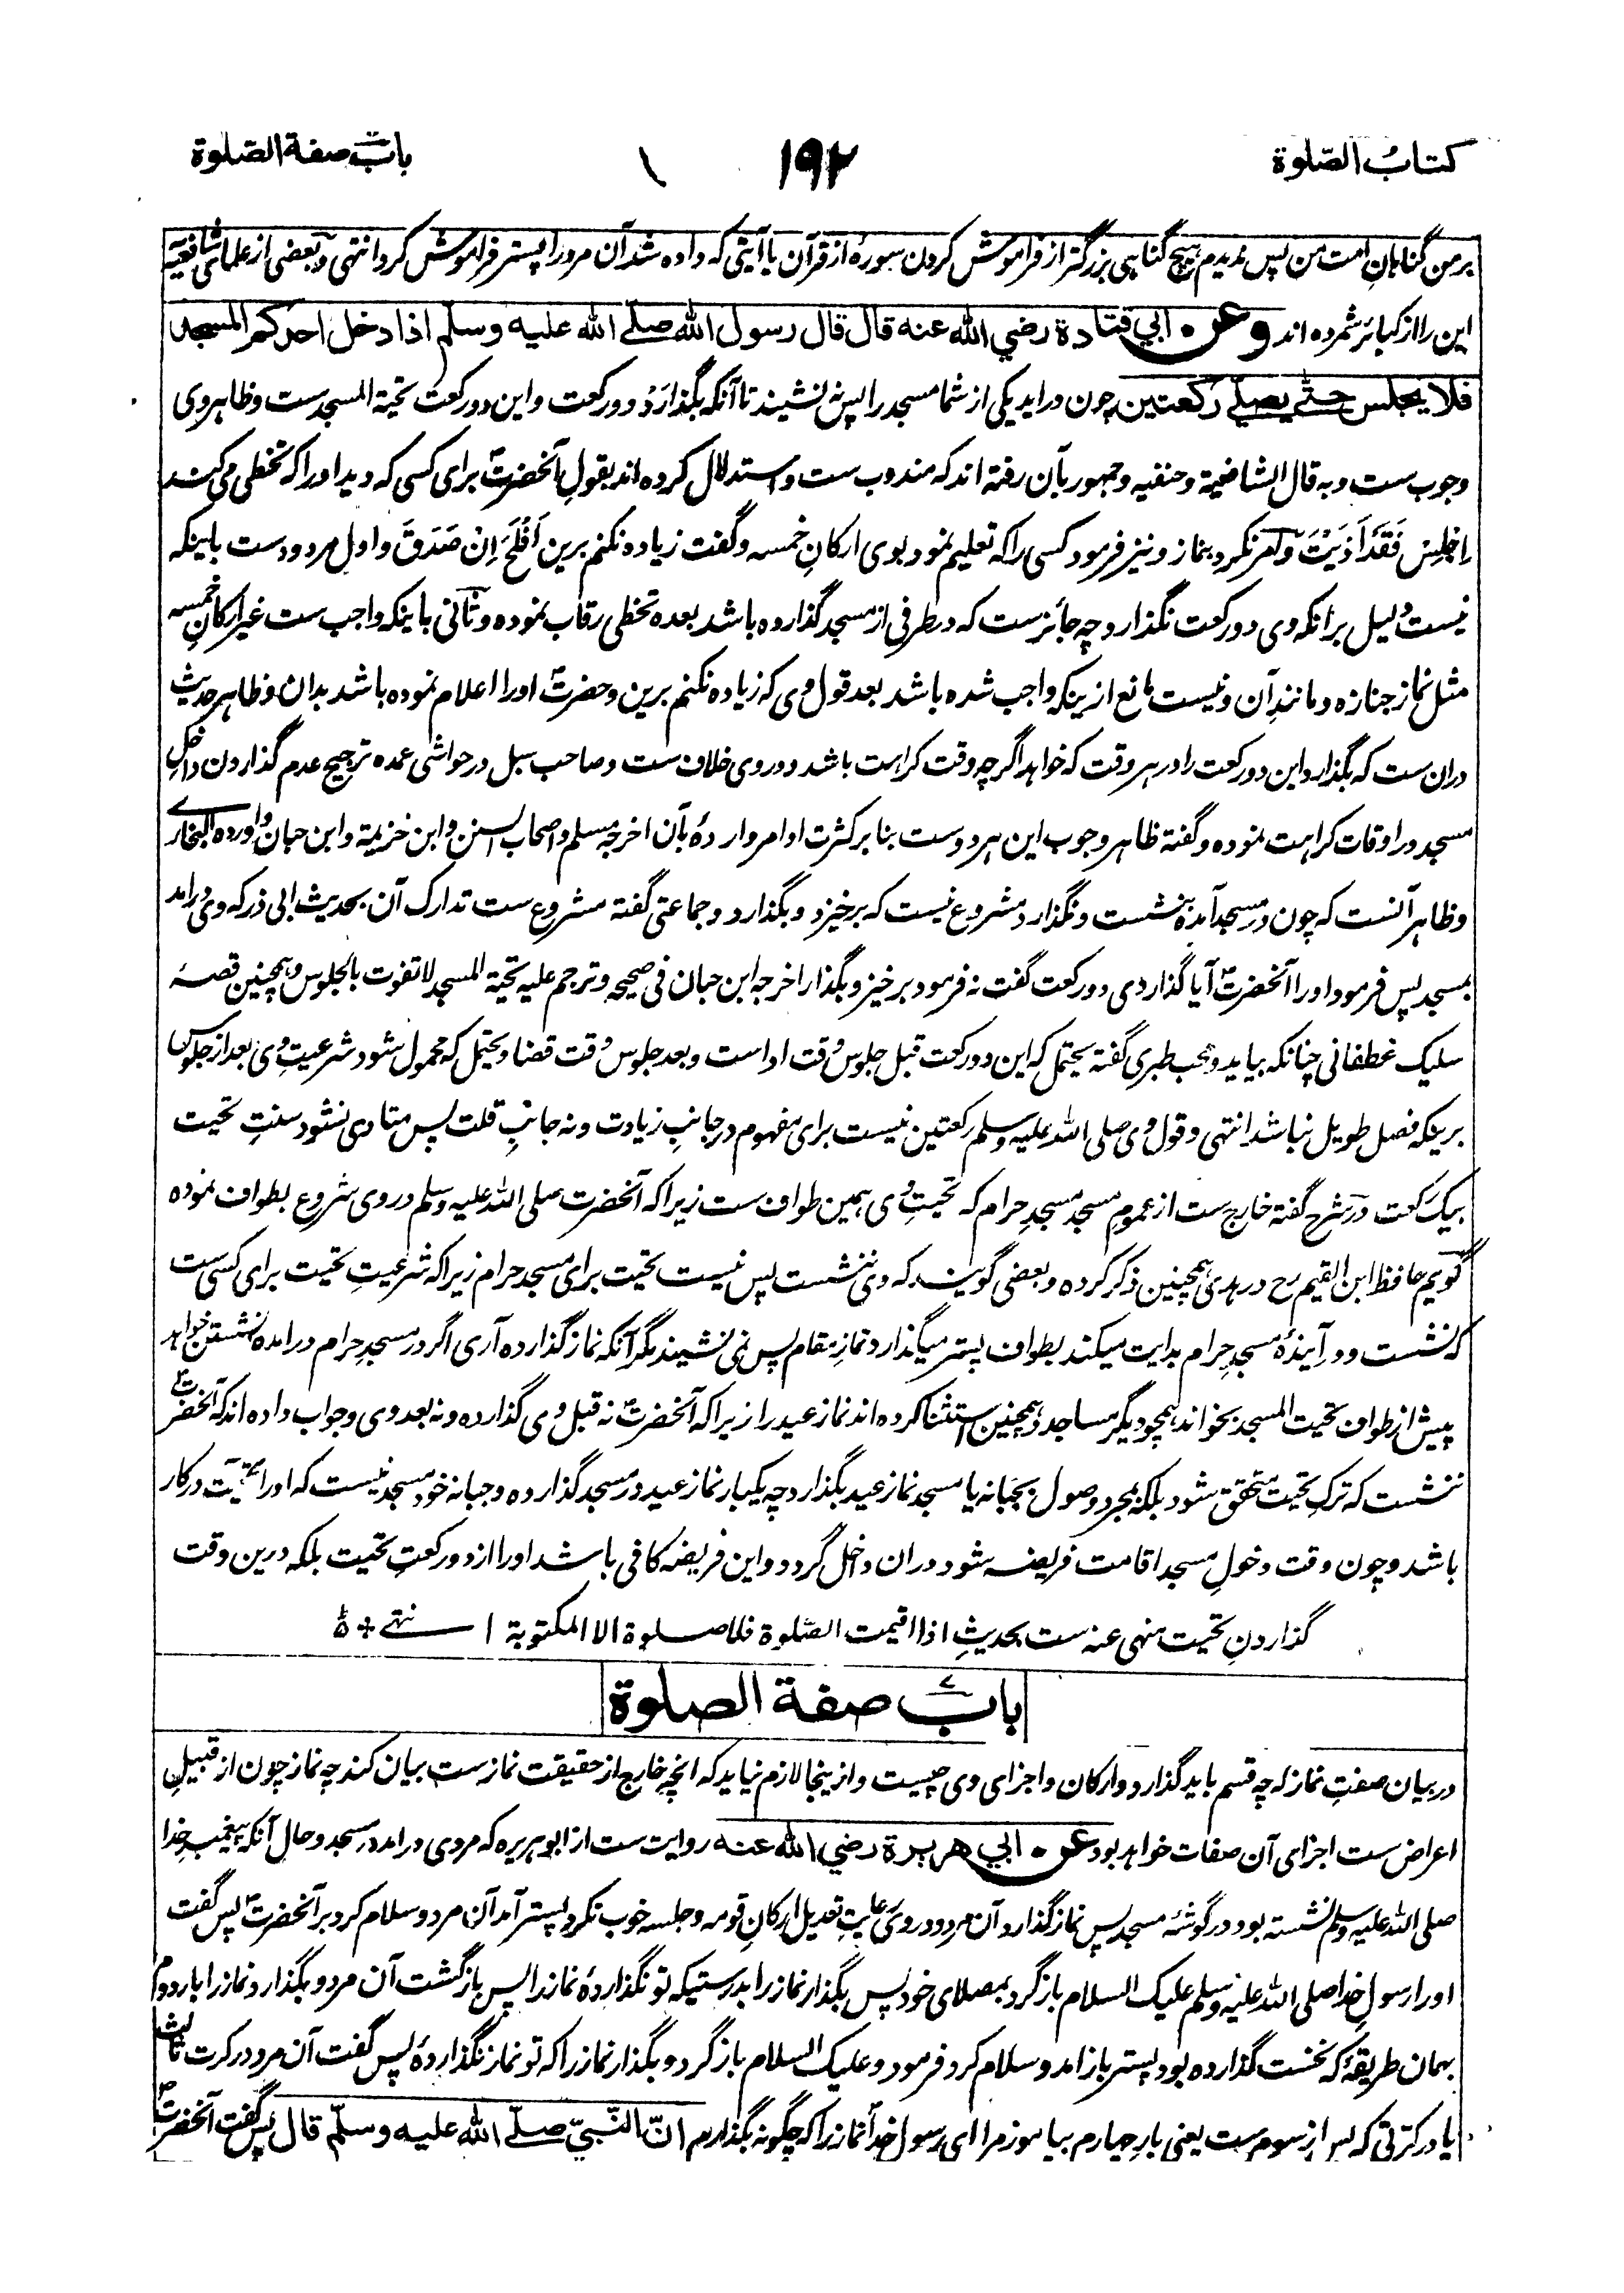 کتاب الصّلوة ۱۹۲ باب صفة الصّلوة
بر من گناهان امت من پس ندیدم هیچ گناهی بزرگتر از فراموش کردن سورهٔ از قرآن یا آیتی که داده شد آن مرد را پستر فراموش کرد انتهی و بعضی از علمای شافعیه
این را از کبائر شمرده اند وعن ابي قتادة رضي الله عنه قال قال رسول الله صلّے الله عليه وسلم اذا دخل احدكم المسجد
فلا يجلس حتّے يصلّے ركعتين چون دراید یکی از شما مسجد را پس نه نشیند تا آنکه بگذارد دو رکعت و این دو رکعت تحیة المسجد ست و ظاهر وی
وجوب ست و به قال الشافعیة و حنفیه و جمهور بآن رفته اند که مندوب ست و استدلال کرده اند بقول آنحضرتؐ برای کسی که دید او را که تخطی می کند
اِجْلِسْ فَقَدْ اٰذَیْتَ و امر نکرد بنماز و نیز فرمود کسی را که تعلیم نمود بوی ارکانِ خمسه و گفت زیاده نکنم برین اَفْلَحَ اِنْ صَدَقَ و اول مردودست باینکه
نیست دلیل برانکه وی دو رکعت نگذارد چه جائزست که در طرفی از مسجد گذارده باشد بعده تخطی رقاب نموده و ثانی باینکه واجب ست غیر ارکانِ خمسه
مثل نماز جنازه و مانندِ آن و نیست مانع ازینکه واجب شده باشد بعد قول وی که زیاده نکنم برین و حضرتؐ او را اعلام نموده باشد بدان و ظاهر حدیث
دران ست که بگذارد این دو رکعت را در هر وقت که خواهد اگرچه وقت کراهت باشد و در وی خلاف ست و صاحب سبل در حواشی عمده ترجیح عدم گذاردن داخلِ
مسجد در اوقات کراهت نموده و گفته ظاهر وجوب این هر دوست بنا بر کثرت اوامر واردهٔ بآن اخرجه مسلم و اصحاب السنن و ابن خزیمة و ابن حبان و اورده البخاری
و ظاهر آنست که چون در مسجد آمده بنشست و نگذارد مشروع نیست که برخیزد و بگذارد و جماعتی گفته مشروع ست تدارک آن بحدیث ابی ذر که وی درامد
بمسجد پس فرمود او را آنحضرتؐ آیا گذاردی دو رکعت گفت نه فرمود برخیز و بگذار اخرجه ابن حبان فی صحیحه و ترجم علیه تحیة المسجد لا تفوت بالجلوس و همچنین قصهٔ
سلیک غطفانی چنانکه بیاید و محب طبری گفته یحتمل که این دو رکعت قبل جلوس وقت اداست و بعد جلوس وقت قضا و یحتمل که محمول شود شرعیتِ وی بعد از جلوس
بریکه فصل طویل نباشد انتهی و قول وی صلی الله علیه وسلم رکعتین نیست برای مفهوم در جانبِ زیادت و نه جانبِ قلت پس متادی نشود سنتِ تحیت
بیک رکعت در شرح گفته خارج ست از عمومِ مسجد مسجدِ حرام که تحیتِ وی همین طواف ست زیرا که آنحضرت صلی الله علیه وسلم در وی شروع بطواف نموده
گویم حافظ ابن القیم رح در هدی همچنین ذکر کرده و بعضی گویند که وی ننشست پس نیست تحیت برای مسجد حرام زیرا که شرعیتِ تحیت برای کسی ست
که نشست و در آیندهٔ مسجدِ حرام بدایت میکند بطواف پستر میگذارد نمازِ مقام پس نمی نشیند مگر آنکه نماز گذارده آری اگر در مسجدِ حرام درامده نشستن خواهد
پیش از طواف تحیت المسجد بخواند همچو دیگر مساجد و همچنین استثنا کرده اند نماز عید را زیرا که آنحضرتؐ نه قبل وی گذارده و نه بعد وی و جواب داده اند که آنحضرتؐ
ننشست که ترکِ تحیت متحقق شود بلکه بمجرد وصول بجبانه یا مسجد نماز عید بگذارد چه یکبار نماز عید در مسجد گذارده و جبانه خود مسجد نیست که او را تحیت درکار
باشد و چون وقت دخولِ مسجد اقامت فریضه شود دران داخل گردد و این فریضه کافی باشد او را از دو رکعتِ تحیت بلکه درین وقت
گذاردنِ تحیت منهی عنه ست بحدیثِ اذا اقیمت الصّلوة فلا صلوة الا المکتوبة انتهے
باب صفة الصلوة
در بیان صفتِ نماز که چه قسم باید گذارد و ارکان و اجزای وی چیست و ازینجا لازم نیاید که انچه خارج از حقیقت نمازست بیان کند چه نماز چون از قبیلِ
اعراض ست اجزای آن صفات خواهد بود عن ابي هريرة رضي الله عنه روایت ست از ابوهریره که مردی درامد در مسجد و حال آنکه پیغمبر خدا
صلی الله علیه وسلم نشسته بود در گوشهٔ مسجد پس نماز گذارد آن مرد و در وی رعایتِ تعدیل ارکانِ قومه و جلسه خوب نکرد پستر آمد آن مرد و سلام کرد بر آنحضرتؐ پس گفت
او را رسولِ خدا صلی الله علیه وسلم علیک السلام باز گرد بمصلای خود پس بگذار نماز را بدرستیکه تو نگذاردهٔ نماز را پس بازگشت آن مرد و بگذارد نماز را بار دوم
بهمان طریقهٔ که نخست گذارده بود پستر باز امد و سلام کرد فرمود و علیک السلام باز گرد و بگذار نماز را که تو نماز نگذاردهٔ پس گفت آن مرد در کرت ثالث
یا در کرتی که پس از سوم ست یعنی بارِ چهارم بیاموز مرا ای رسول خدا نماز را که چگونه بگذارم انّ النّبيّ صلّے الله عليه وسلّم قال پس گفت آنحضرتؐ